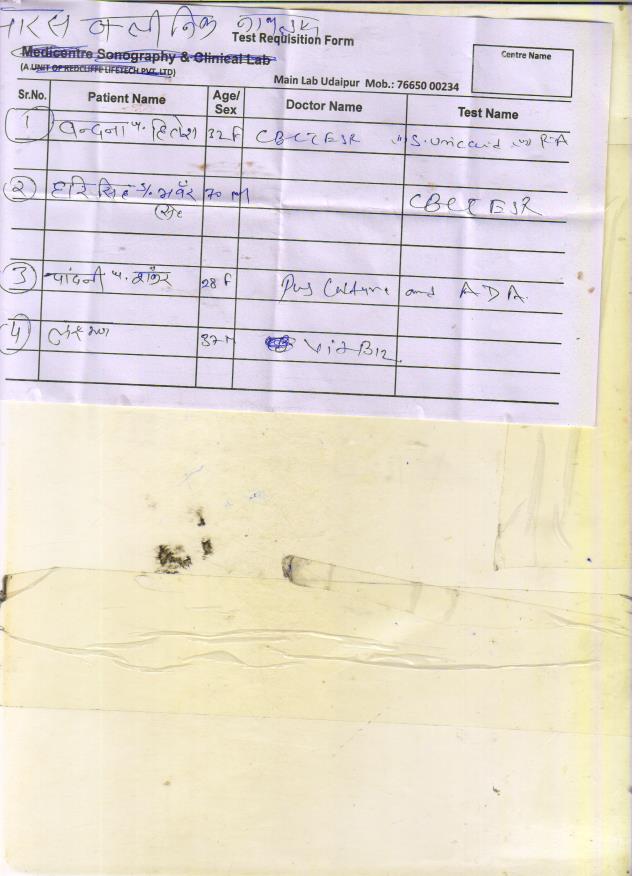 पारस क्लीनिक
Test Requisition Form
Medicentre Sonography & Clinical Lab
(A UNIT OF REDCLIFFE LIFETECH PVT. LTD)
Centre Name
Main Lab Udaipur Mob.: 76650 00234
Sr.No. Patient Name Age/Sex Doctor Name Test Name
1 वन्दना w. हितेश 32 F CBC ESR S. Uric acid RA
2 हरि सिंह S/o भवँर सिंह 70 M CBC ESR
3 चांदनी w. शंकर 28 F Pus Culture and ADA
4 37 M Vit B12